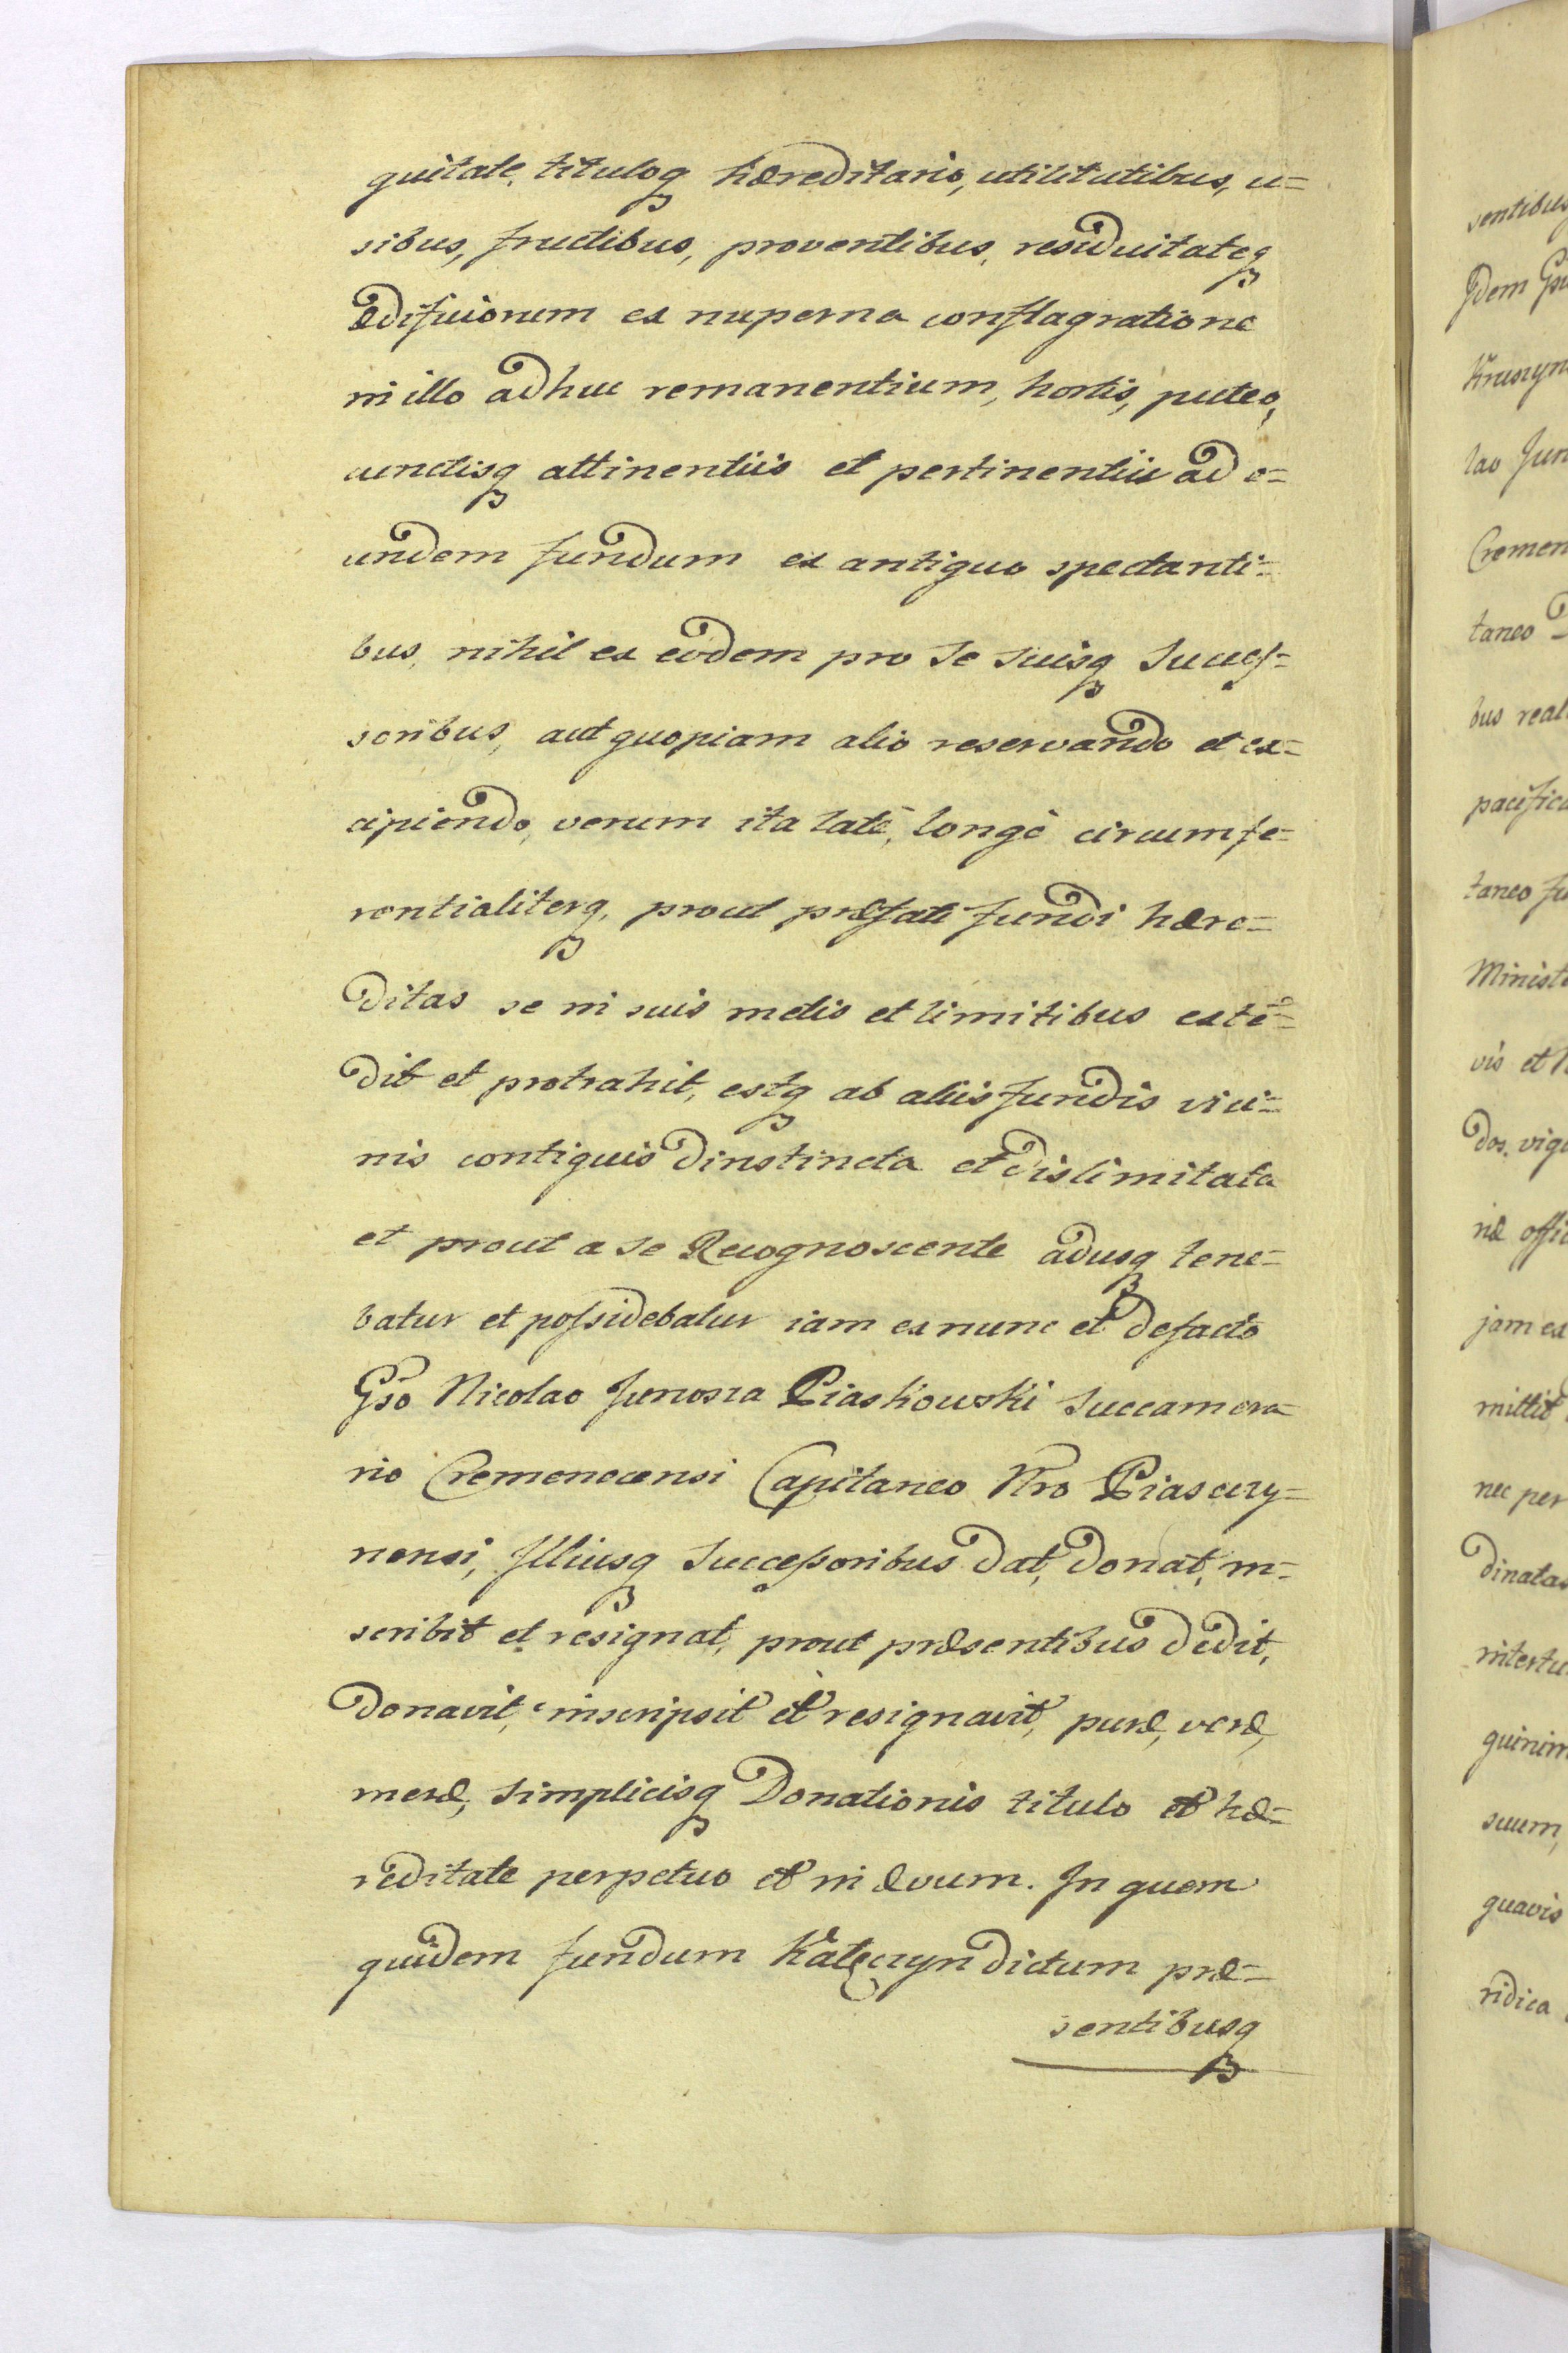 quitate, tituloq₃ hæreditario, utilitutibus, u=
sibus, fructibus, proventibus, residuitateq₃
ædificiorum ex nuperna conflagratione
in illo adhuc remanentium, hortis, puteo,
cunctisq₃ attinentiis et pertinentiis ad e=
undem fundum ex antiquo spectanti=
bus, nihil ex eodem pro se suisq₃ Succeſ=
soribus, aut quopiam alio reservando et ex=
cipiendo, verum ita latè, longè circumfe=
rentialiterq₃, prout præfati fundi hære=
ditas se in suis metis et limitibus extē=
dit et protrahit, estq₃ ab aliis fundis vici=
nis contiguis dinstincta et dislimitata
et prout a se Recognoscente adusq₃ tene=
batur et poſsidebatur iam ex nunc et de facto
Gso Nicolao Junosza Piaskowski Succamera=
rio Cremenecensi Capitaneo Nro Piasecry=
nensi, Illiusq₃ Succeſsoribus dat, donat, in=
scribit et resignat, prout præsentibus dedit,
donavit, inscripsit et resignavit, puræ, veræ,
meræ, simplicisq₃ Donationis titulo et hæ=
reditate perpetuo et in ævum. In quem
quidem fundum Katęczyn dictum præ=
sentibusq₃
sentibus
Idem Gs
Kruszyn
lao Jun
Cremen
taneo
bus real
pacifica
taneo fu
Ministe
vis et
dos, vig
næ offic
jam ex
mittit
nec per
dinatas
intertu
quinim
suum,
quavis
ridica